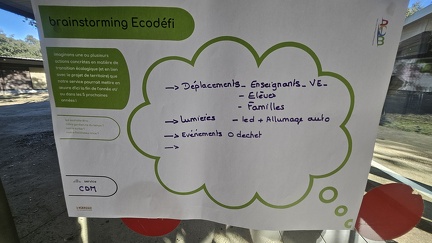 brainstorming Ecodéfi
Imaginons une ou plusieurs
actions concrètes en matière de
transition écologique (et en lien
avec le projet de territoire) que
notre service pourrait mettre en
œuvre d'ici la fin de l'année et/
ou dans les 5 prochaines
années !
→ Déplacements - Enseignants - VE -
- Elèves
- Familles
→ Lumières - led + Allumage auto
→ Evènements 0 dechet
→
service
CDM